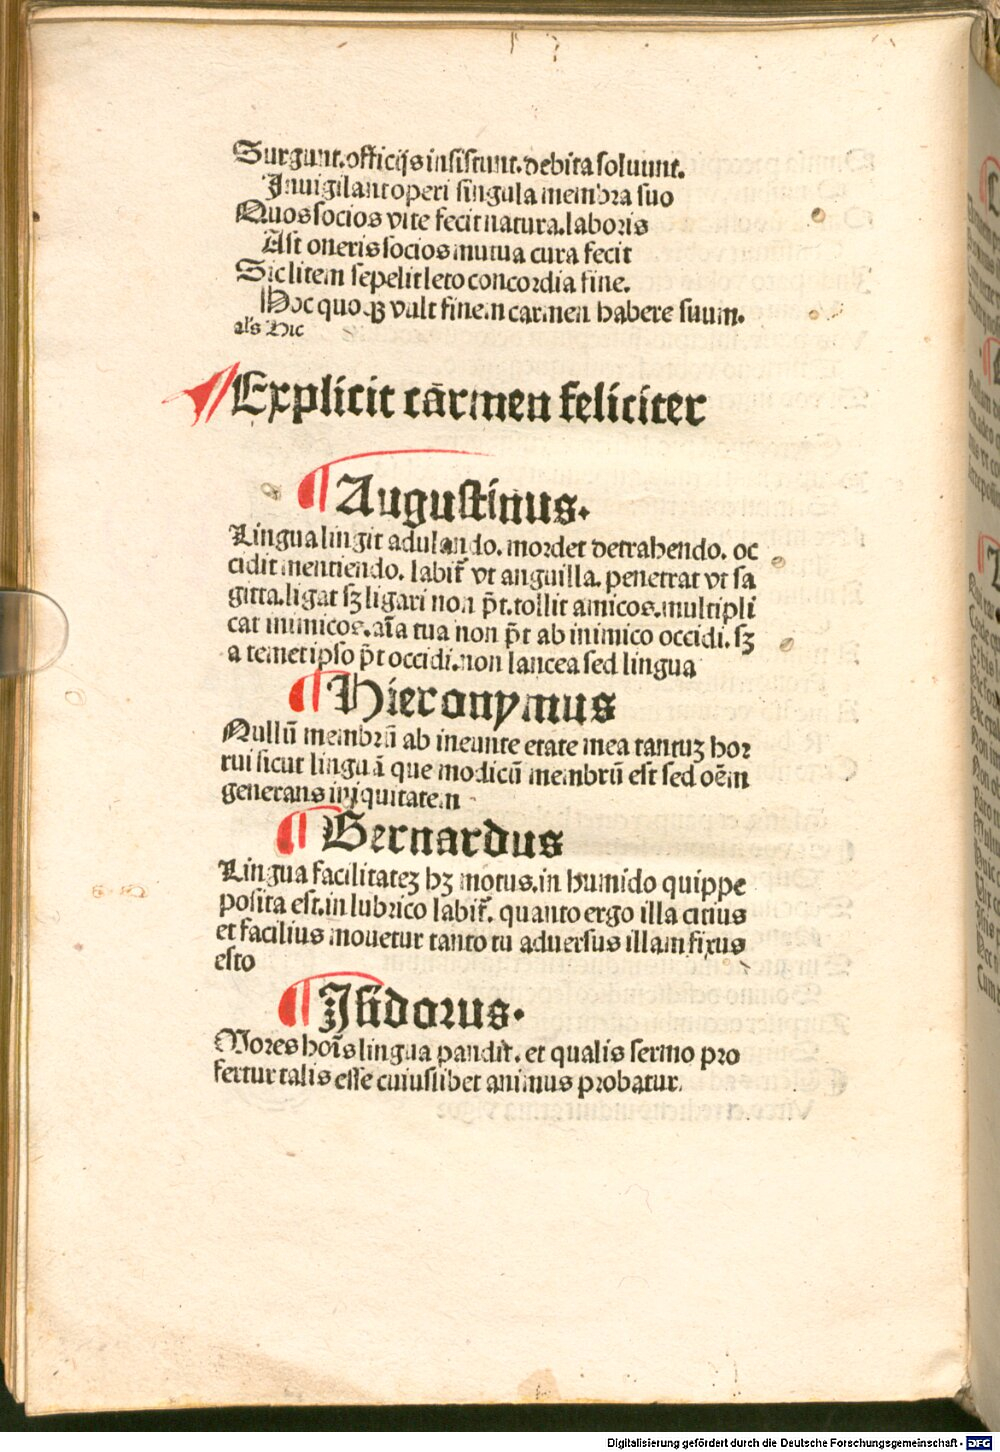 Surgunt.officijs insistunt.debita soluunt.
Inuigilant operi singula membra suo
Quos socios vite fecit natura.laboris
Ast oneris socios mutua cura fecit
Sic litem sepelit leto concordia fine.
Hoc quoqꝫ vult finem carmen habere suum.
als Hic
¶Explicit cārmen feliciter
¶ Augustinus.
Lingua lingit adulando. mordet detrahendo. oc
cidit mentiendo. labit᷑ vt anguilla. penetrat vt sa
gitta.ligat sꝫ ligari non p̄t.tollit amicos.multipli
cat inimicos.aīa tua non p̄t ab inimico occidi.sꝫ
a temetipso p̄t occidi.non lancea sed lingua
¶ Hieronymus
Nullū membrū ab ineunte etate mea tantuꝫ hor
rui sicut linguā que modicū membrū est sed oēm
generans iniquitatem
¶ Bernardus
Lingua facilitateꝫ hꝫ motus.in humido quippe
posita est.in lubrico labit᷑. quanto ergo illa citius
et facilius mouetur tanto tu aduersus illam fixus
esto
¶ Isidorus.
Mores hoīs lingua pandit. et qualis sermo pro
fertur talis esse cuiuslibet animus probatur.
Digitalisierung gefördert durch die Deutsche Forschungsgemeinschaft - DFG